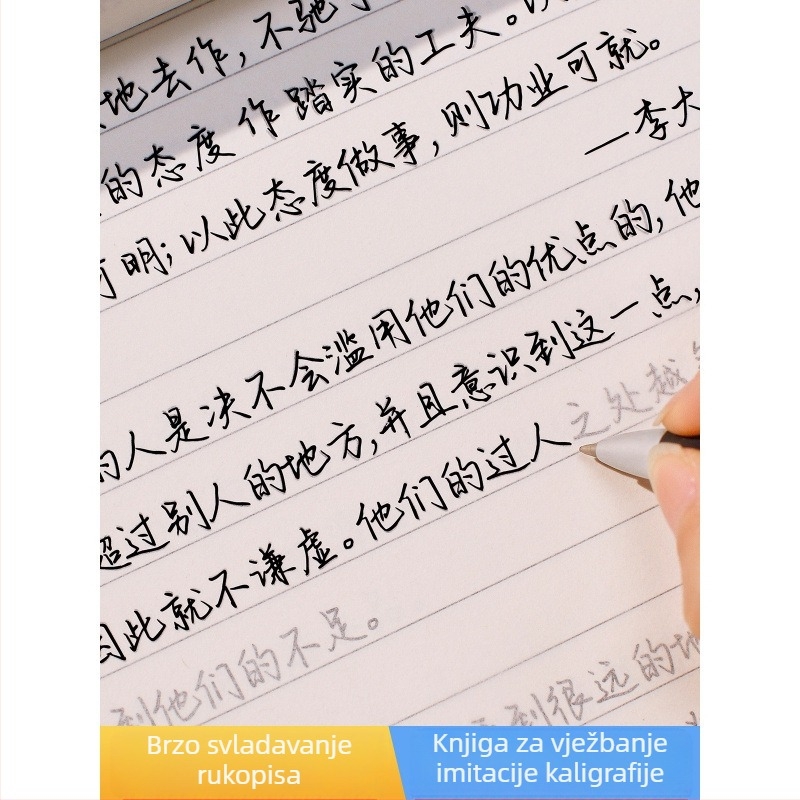 地去作，不驰
的态度作踏实的工夫。以
明；以此态度做事，则功业可就。
—李大
人是决不会滥用他们的优点的，他
超过别人的地方，并且意识到这一点，
因此就不谦虚。他们的过人之处越
到他们的不足。
到很远的地
Brzo svladavanje
rukopisa
Knjiga za vježbanje
imitacije kaligrafije